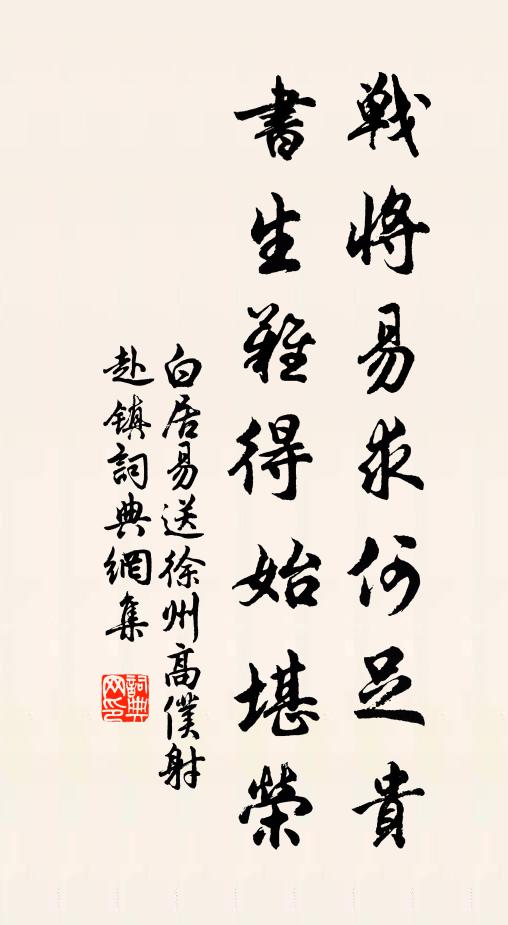 戰將易求何足貴
書生難得始堪榮
白居易送徐州高僕射
赴鎮詞典網集
詞典網印